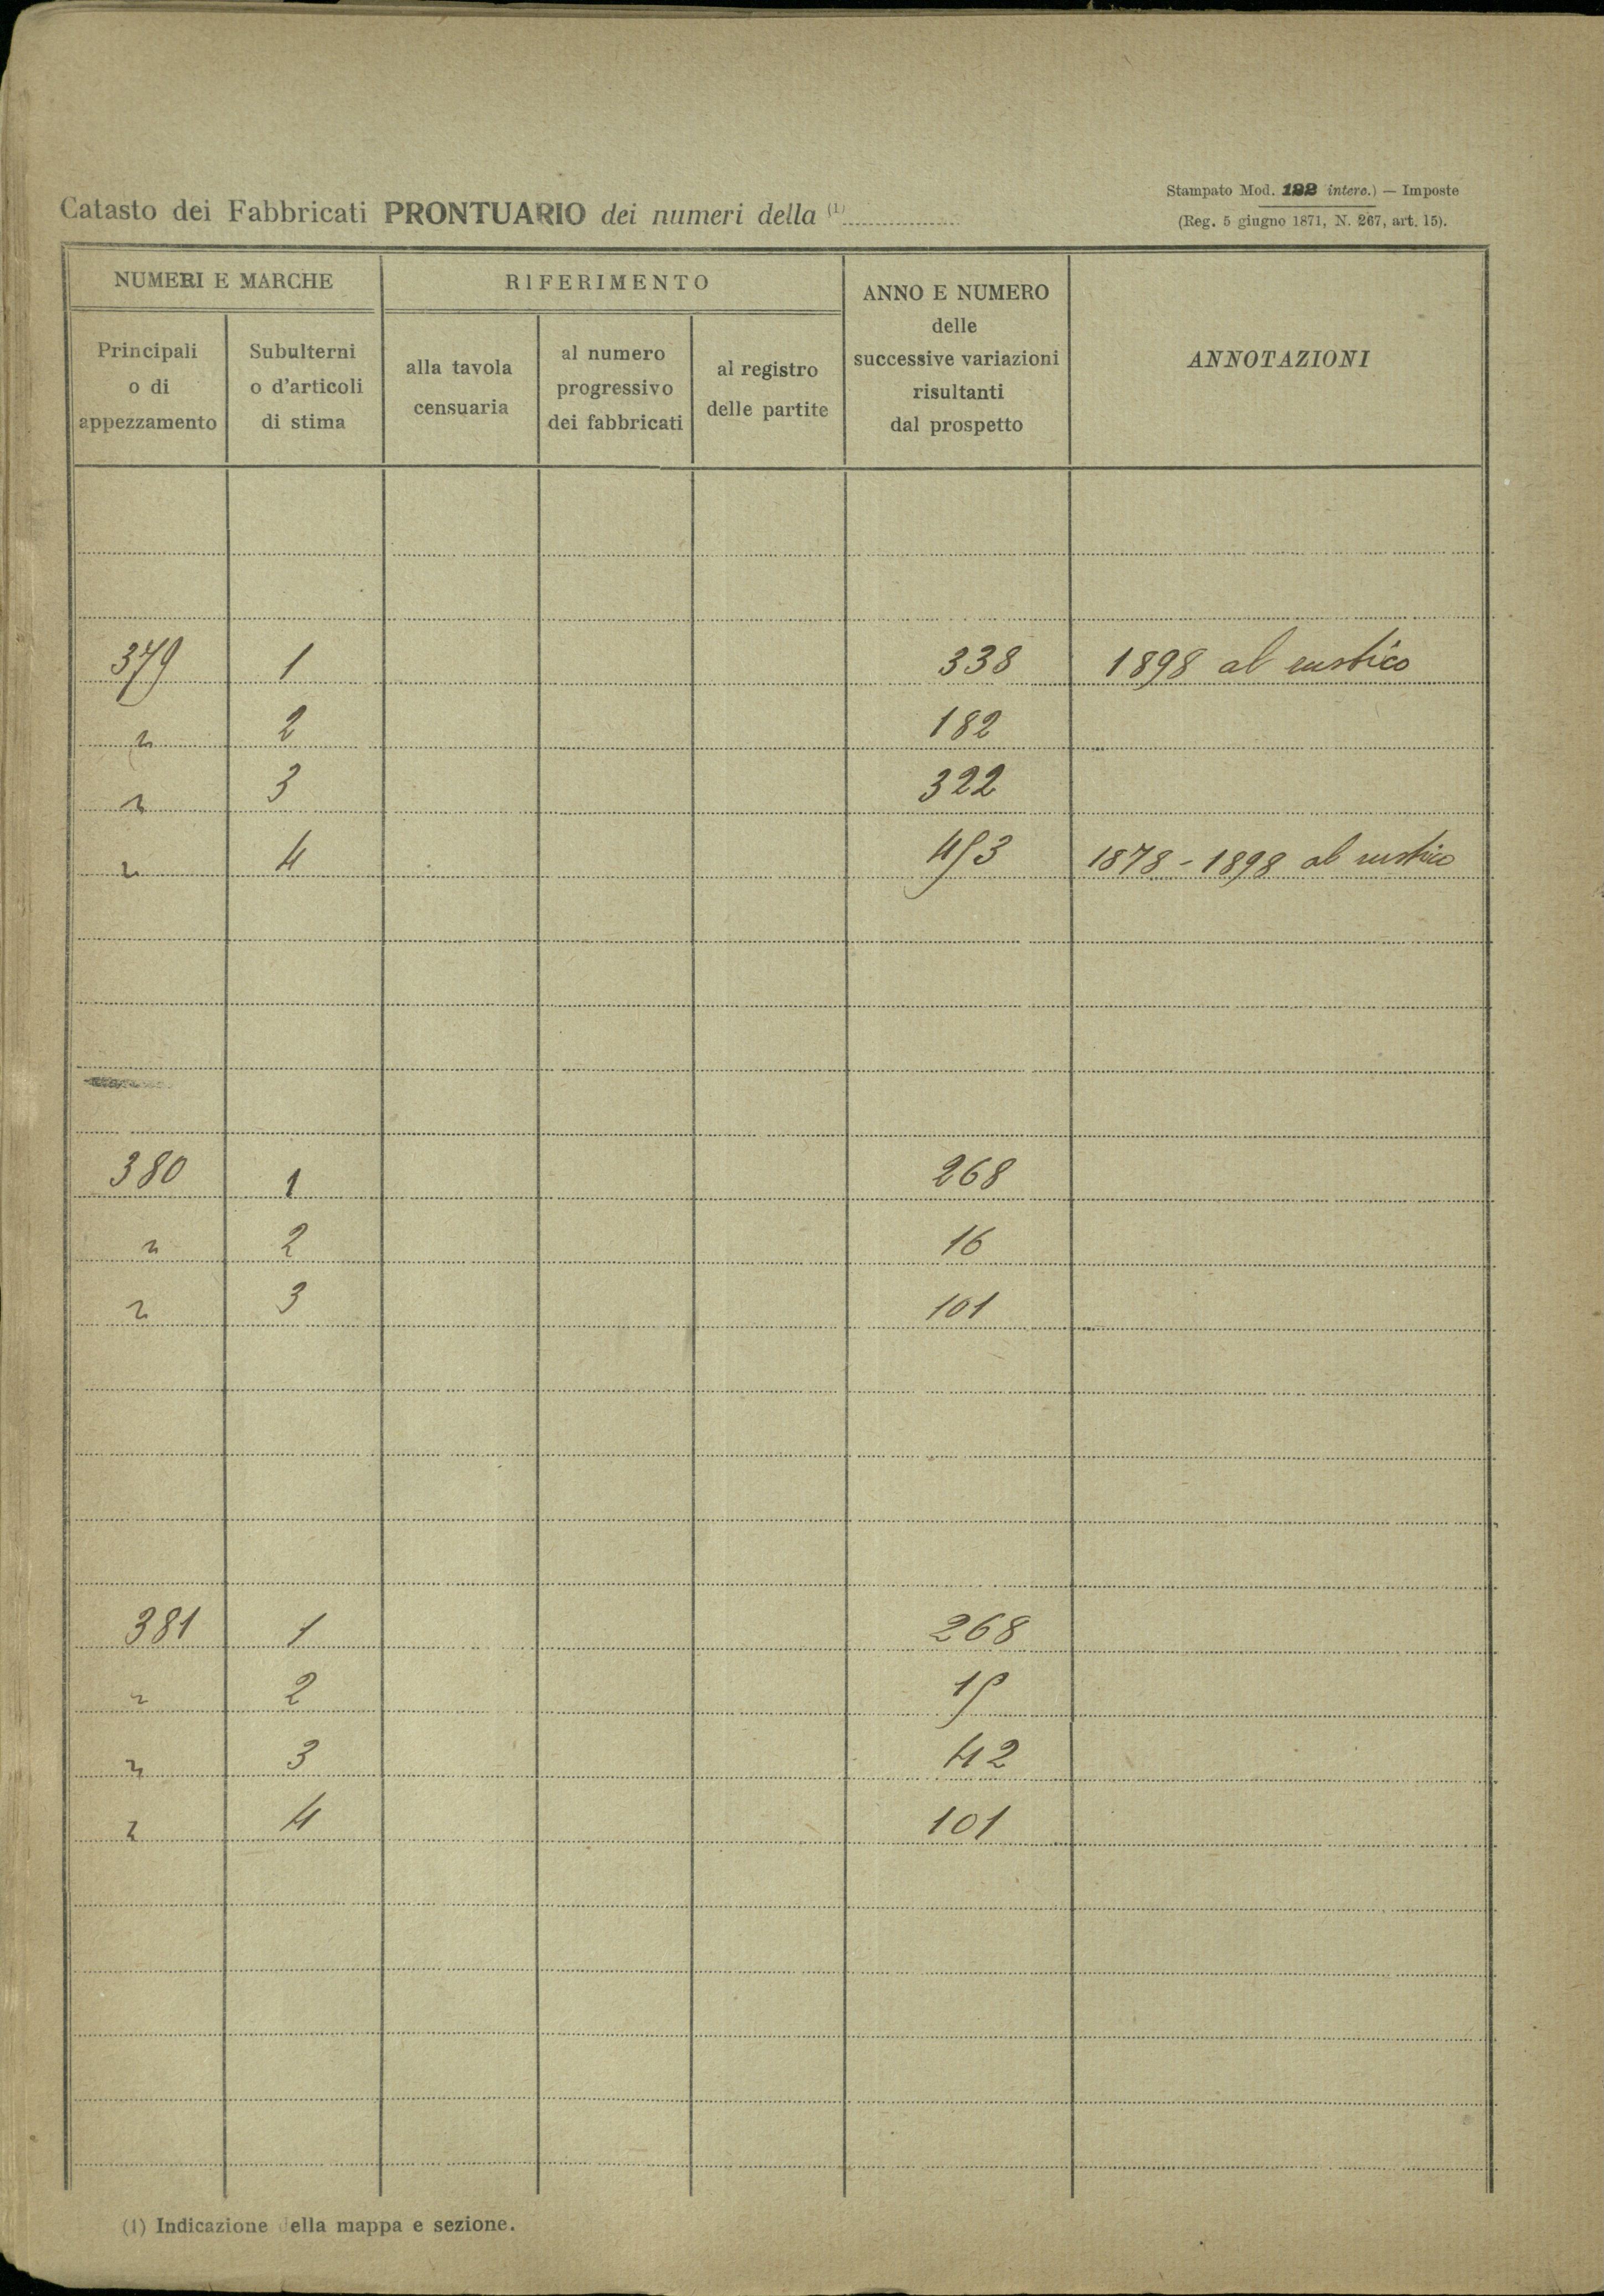 Stampato Mod. 122 interc.) — Imposte
Catasto dei Fabbricati PRONTUARIO dei numeri della (1)
(Reg. 5 giugno 1871, N. 267, art. 15).
NUMERI E MARCHE RIFERIMENTO ANNO E NUMERO delle successive variazioni risultanti dal prospetto ANNOTAZIONI
Principali o di appezzamento Subulterni o d'articoli di stima alla tavola censuaria al numero progressivo dei fabbricati al registro delle partite
379 1 338 1898 al rustico
" 2 182
" 3 322
" 4 453 1878 - 1898 al rustico
380 1 268
" 2 16
" 3 101
381 1 268
" 2 15
" 3 42
" 4 101
(1) Indicazione della mappa e sezione.